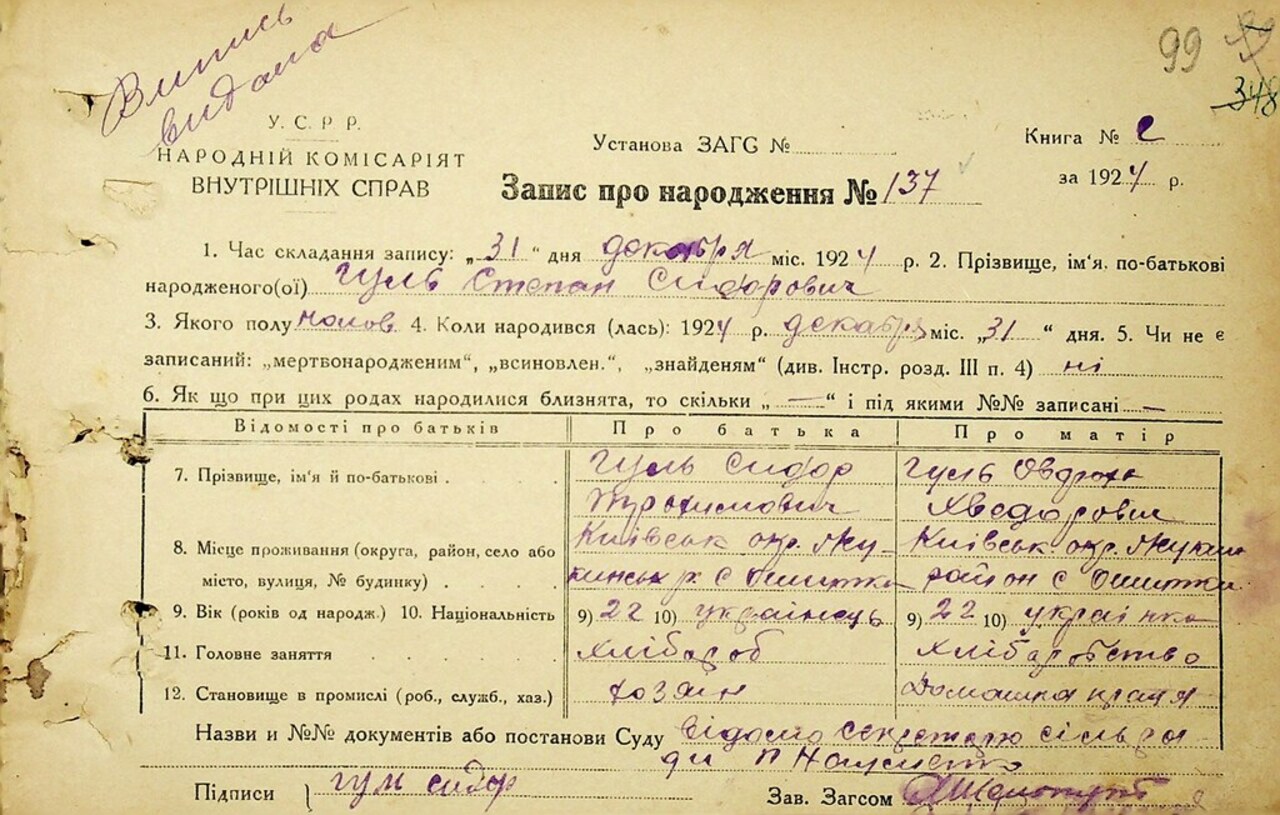 Випись
видана
99
348
У.С.Р.Р.
НАРОДНІЙ КОМІСАРІЯТ
ВНУТРІШНІХ СПРАВ
Установа ЗАГС №
Книга № 2
за 1924 р.
Запис про народження № 137
1. Час складання запису: „31“ дня декабря міс. 1924 р. 2. Прізвище, ім'я, по-батькові
народженого(ої) Гуль Степан Сидорович
3. Якого полу 4. Коли народився (лась): 1924 р. декабря міс. „31“ дня. 5. Чи не є
записаний: „мертвонародженим“, „всиновлен.“, „знайденям“ (див. Інстр. розд. III п. 4) ні
6. Як що при цих родах народилися близнята, то скільки „—“ і під якими №№ записані —
Відомості про батьків Про батька Про матір
7. Прізвище, ім'я й по-батькові Гуль Сидор Гуль
Трохимович
8. Місце проживання (округа, район, село або Київськ окр. Київськ окр.
місто, вулиця, № будинку) район с
9. Вік (років од народж.) 10. Національність 9) 22 10) українець 9) 22 10) українка
11. Головне заняття Хлібароб Хлібаробство
12. Становище в промислі (роб., служб., хаз.) хозаін Домашня
Назви и №№ документів або постанови Суду відомо секретарю сільра
ди
Підписи Гул сидор
Зав. Загсом